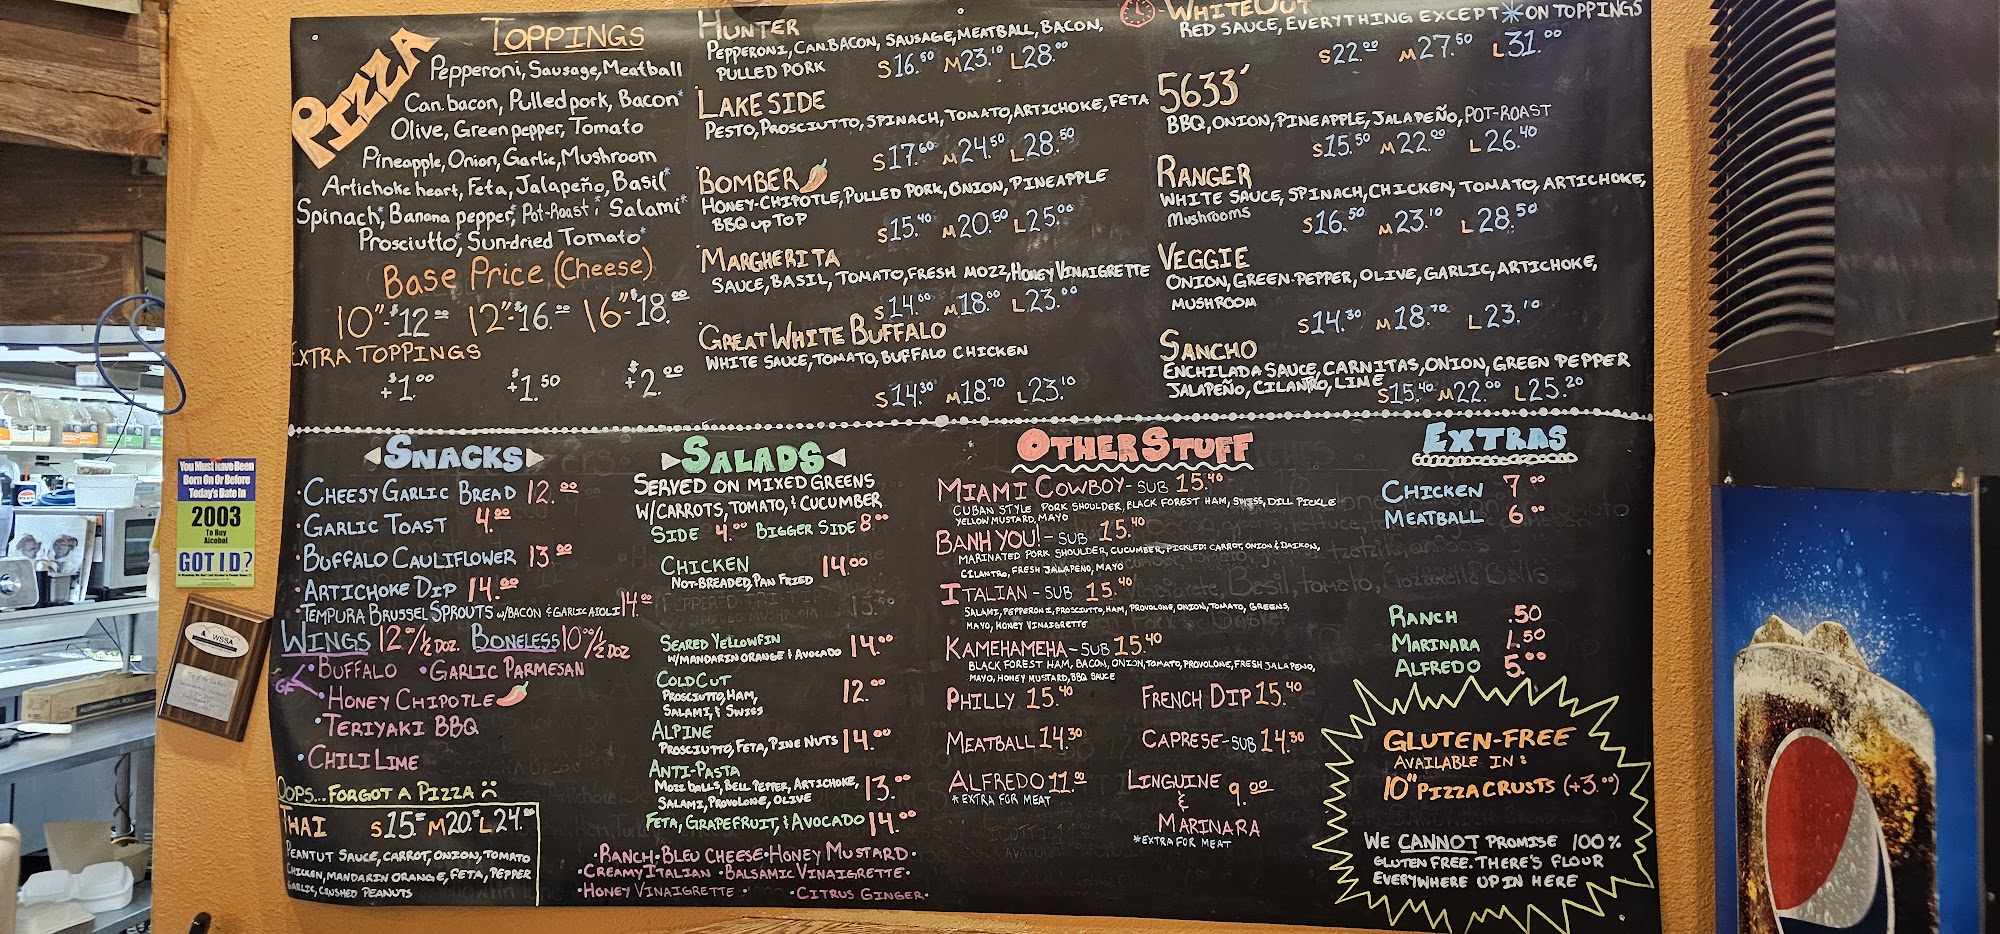 PIZZA
TOPPINGS
Pepperoni, Sausage, Meatball
Can. bacon, Pulled pork, Bacon*
Olive, Green pepper, Tomato
Pineapple, Onion, Garlic, Mushroom
Artichoke heart, Feta, Jalapeño, Basil*
Spinach*, Banana pepper*, Pot-Roast*, Salami*
Prosciutto*, Sun-dried Tomato*
Base Price (Cheese)
10"-$12.00 12"-$16.00 16"-$18.00
EXTRA TOPPINGS
+$1.00 +$1.50 +$2.00
HUNTER
PEPPERONI, CAN.BACON, SAUSAGE, MEATBALL, BACON,
PULLED PORK S16.50 M23.10 L28.00
LAKESIDE
PESTO, PROSCIUTTO, SPINACH, TOMATO, ARTICHOKE, FETA
S17.60 M24.50 L28.50
BOMBER
HONEY-CHIPOTLE, PULLED PORK, ONION, PINEAPPLE
BBQ UP TOP
S15.40 M20.50 L25.00
MARGHERITA
SAUCE, BASIL, TOMATO, FRESH MOZZ, HONEY VINAIGRETTE
S14.00 M18.00 L23.00
GREAT WHITE BUFFALO
WHITE SAUCE, TOMATO, BUFFALO CHICKEN
S14.30 M18.70 L23.10
WHITEOUT
RED SAUCE, EVERYTHING EXCEPT * ON TOPPINGS
S22.00 M27.50 L31.00
5633'
BBQ, ONION, PINEAPPLE, JALAPEÑO, POT-ROAST
S15.50 M22.00 L26.40
RANGER
WHITE SAUCE, SPINACH, CHICKEN, TOMATO, ARTICHOKE,
MUSHROOMS
S16.50 M23.10 L28.50
VEGGIE
ONION, GREEN-PEPPER, OLIVE, GARLIC, ARTICHOKE,
MUSHROOM
S14.30 M18.70 L23.10
SANCHO
ENCHILADA SAUCE, CARNITAS, ONION, GREEN PEPPER
JALAPEÑO, CILANTRO, LIME S15.40 M22.00 L25.20
SNACKS
·CHEESY GARLIC BREAD 12.00
·GARLIC TOAST 4.00
·BUFFALO CAULIFLOWER 13.00
·ARTICHOKE DIP 14.00
·TEMPURA BRUSSEL SPROUTS W/BACON & GARLIC AIOLI 14.00
WINGS 12.00/½ DOZ. BONELESS 10.00/½ DOZ
GF
·BUFFALO ·GARLIC PARMESAN
·HONEY CHIPOTLE
·TERIYAKI BBQ
·CHILI LIME
OOPS...FORGOT A PIZZA
THAI S15.00 M20.00 L24.00
PEANTUT SAUCE, CARROT, ONION, TOMATO
CHICKEN, MANDARIN ORANGE, FETA, PEPPER
GARLIC, CRUSHED PEANUTS
SALADS
SERVED ON MIXED GREENS
W/CARROTS, TOMATO, & CUCUMBER
SIDE 4.00 BIGGER SIDE 8.00
CHICKEN 14.00
NOT-BREADED, PAN FRIED
SEARED YELLOWFIN 14.00
W/MANDARIN ORANGE & AVOCADO
COLDCUT
PROSCIUTTO, HAM, 12.00
SALAMI, & SWISS
ALPINE
PROSCIUTTO, FETA, PINE NUTS 14.00
ANTI-PASTA
MOZZ BALLS, BELL PEPPER, ARTICHOKE, 13.00
SALAMI, PROVOLONE, OLIVE
FETA, GRAPEFRUIT, & AVOCADO 14.00
·RANCH·BLEU CHEESE·HONEY MUSTARD·
·CREAMY ITALIAN ·BALSAMIC VINAIGRETTE·
·HONEY VINAIGRETTE ·CITRUS GINGER·
OTHER STUFF
MIAMI COWBOY-SUB 15.40
CUBAN STYLE PORK SHOULDER, BLACK FOREST HAM, SWISS, DILL PICKLE
YELLOW MUSTARD, MAYO
BANH YOU!-SUB 15.40
MARINATED PORK SHOULDER, CUCUMBER, PICKLED: CARROT, ONION & DAIKON,
CILANTRO, FRESH JALAPENO, MAYO
ITALIAN-SUB 15.40
SALAMI, PEPPERONI, PROSCIUTTO, HAM, PROVOLONE, ONION, TOMATO, GREENS,
MAYO, HONEY VINAIGRETTE
KAMEHAMEHA-SUB 15.40
BLACK FOREST HAM, BACON, ONION, TOMATO, PROVOLONE, FRESH JALAPENO,
MAYO, HONEY MUSTARD, BBQ SAUCE
PHILLY 15.40 FRENCH DIP 15.40
MEATBALL 14.30 CAPRESE-SUB 14.30
ALFREDO 11.00
*EXTRA FOR MEAT
LINGUINE
& 9.00
MARINARA
*EXTRA FOR MEAT
EXTRAS
CHICKEN 7.00
MEATBALL 6.00
RANCH .50
MARINARA 1.50
ALFREDO 5.00
GLUTEN-FREE
AVAILABLE IN:
10" PIZZA CRUSTS (+3.00)
WE CANNOT PROMISE 100%
GLUTEN FREE. THERE'S FLOUR
EVERYWHERE UP IN HERE
You Must Have Been
Born On Or Before
Today's Date In
2003
To Buy
Alcohol
GOT I.D.?
WSSA